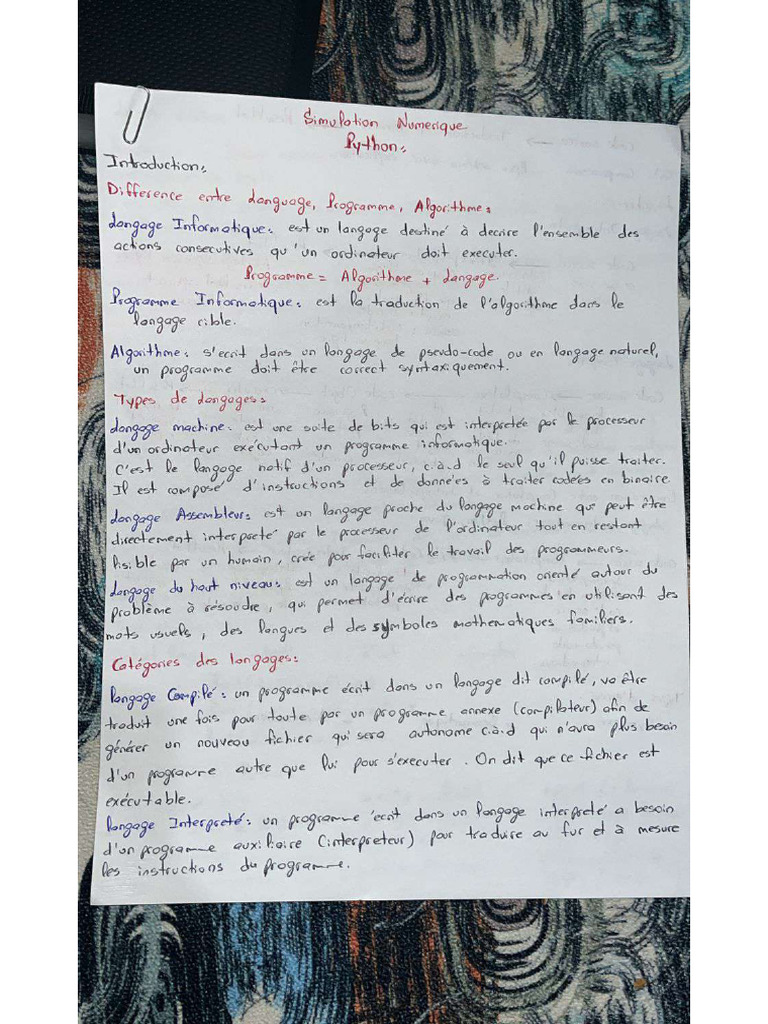 Simulation Numerique
Python:
Introduction:
Difference entre Language, Programme, Algorithme:
Langage Informatique: est un langage destiné à decrire l'ensemble des
actions consecutives qu'un ordinateur doit executer.
Programme = Algorithme + Langage.
Programme Informatique: est la traduction de l'algorithme dans le
langage cible.
Algorithme: s'ecrit dans un langage de pseudo-code ou en langage naturel,
un programme doit être correct syntaxiquement.
Types de Langages:
Langage machine: est une suite de bits qui est interpretée par le processeur
d'un ordinateur exécutant un programme informatique.
C'est le langage natif d'un processeur, c.à.d le seul qu'il puisse traiter.
Il est composé d'instructions et de données à traiter codées en binaire.
Langage Assembleur: est un langage proche du langage machine qui peut être
directement interpreté par le processeur de l'ordinateur tout en restant
lisible par un humain, crée pour faciliter le travail des programmeurs.
Langage du haut niveau: est un langage de programmation orienté autour du
problème à résoudre, qui permet d'écrire des programmes en utilisant des
mots usuels, des langues et des symboles mathematiques familiers.
Catégories des langages:
Langage Compilé: un programme écrit dans un langage dit compilé, va être
traduit une fois pour toute par un programme annexe (compilateur) afin de
générer un nouveau fichier qui sera autonome c.à.d qui n'aura plus besoin
d'un programme autre que lui pour s'executer. On dit que ce fichier est
exécutable.
Langage Interpreté: un programme écrit dans un langage interpreté a besoin
d'un programme auxiliaire (interpreteur) pour traduire au fur et à mesure
les instructions du programme.